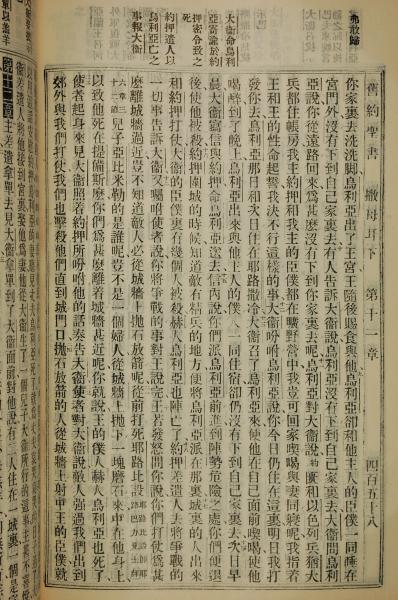 舊約聖書 撒母耳下 第十一章 四百五十八
弗敢歸
大衛命烏利
亞 於約
押密令致之
約押遣人以
烏利亞亡之
事報大衛
你家裏去洗洗脚烏利亞出了王宮王隨後賜食與他烏利亞卻和他主人的臣僕一同睡在
宮門外沒有下到自己家裏去有人告訴大衛說烏利亞沒有下到自己家裏去大衛問烏利
亞說你從遠路回來爲甚麽沒有下到你家裏去呢烏利亞對大衛說約匱和以色列兵猶大
兵都住帳房我主約押和我主的臣僕都在曠野營中我豈可回家喫喝與妻同寢呢我指着
王和王的性命起誓我決不行這樣的事大衛吩咐烏利亞說你今日仍住在這裏明日我打
發你去烏利亞那日和次日住在耶路撒冷大衛召了烏利亞來使他在自己面前喫喝使他
喝醉到了晚上烏利亞出來與他主人的僕人一同住宿卻仍沒有下到自己家裏去次日早
晨大衛寫信與約押命烏利亞送去信內說你們派烏利亞前進到陣勢危險之處你們便退
後使他被殺約押圍城的時候知道敵有精兵的地方便將烏利亞派在那裏城裏的人出來
和約押打仗大衛的臣僕裏有幾個人被殺赫人烏利亞也陣亡了約押差遣人去將爭戰的
一切事告訴大衛又囑咐使者說你將爭戰的事對王說完王若發怒問你說你們打仗爲甚
麽離城牆過近豈不知道敵人必從城牆上拋石放箭呢從前打死耶路比設耶路比設卽耶路巴力見士師
六章三十二節兒子亞比米勒的是誰呢豈不是一個婦人從城牆上拋下一塊磨石來中在他身上
以致他死在提備斯麽你們爲甚麽離着城牆甚近呢你就說王的僕人赫人烏利亞也死了
使者起身來見大衛照着約押所吩咐他的話奏告大衛使者對大衛說敵人强過我們出到
郊外與我們打仗我們也擊殺他們直到城門口拋石放箭的人從城牆上射中王的臣僕就
衛差遣人將他接到宮裏娶他爲妻他從大衛生了一個兒子大衛所行的這事
第十二章主差遣拿單去見大衛拿單到了大衛面前對他說有二人住在一城裏一個是